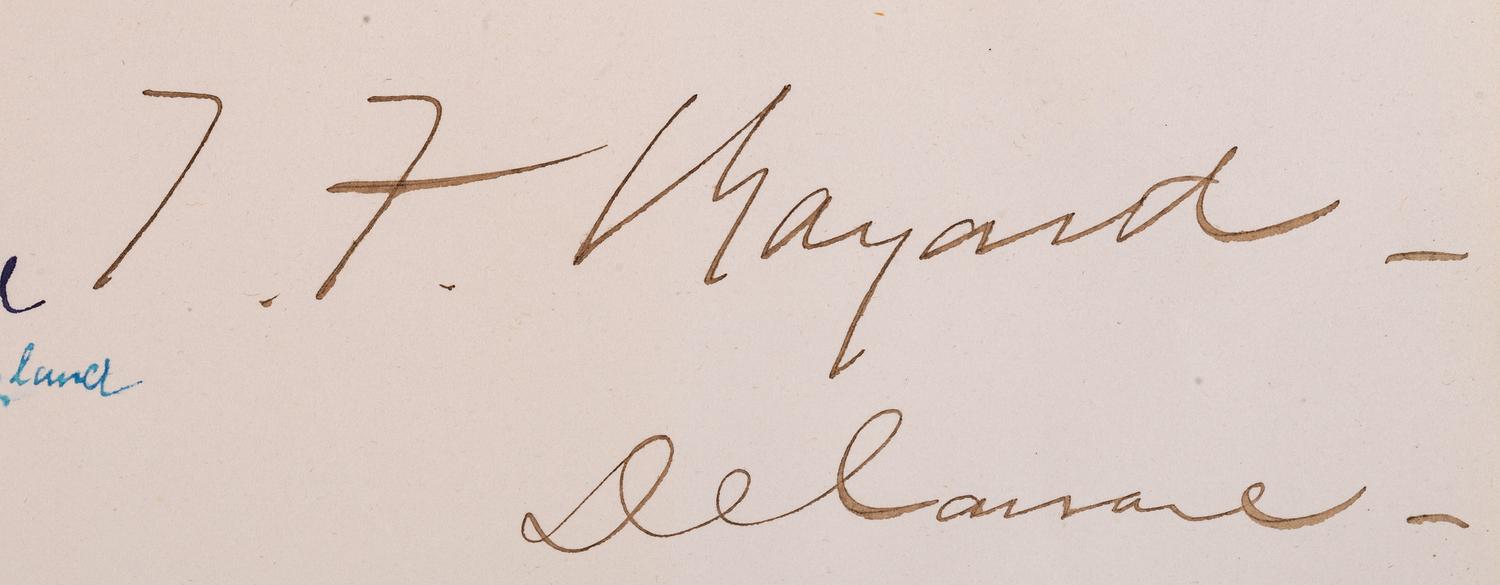 T. F. Bayard –
land
Delaware –